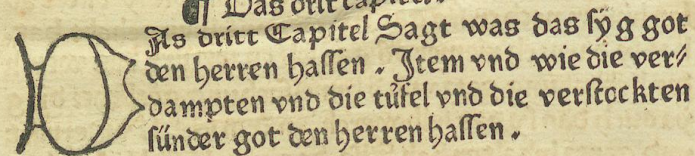 ¶ Das dritt capitel.
DAs dritt Capitel Sagt was das syg got
den herren hassen. Item vnd wie die ver⸗
dampten vnd die tüfel vnd die verstockten
sünder got den herren hassen.